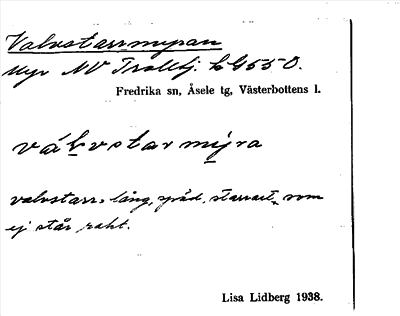 Valvstarrmyran
Myr NV Trollbj. k G550.
Fredrika sn, Åsele tg, Västerbottens l.
válvstarmy̱ra
valvstarr = lång, späd, starrart, som
ej står rakt.
Lisa Lidberg 1938.